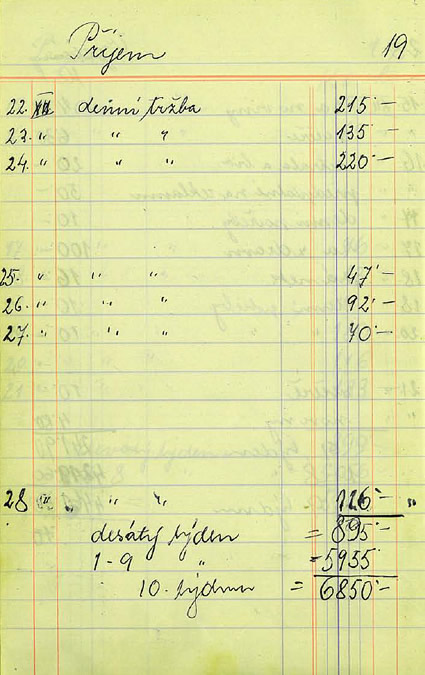 Příjem 19
22. denní tržba 215·—
23. " " " 135·—
24. " " " 220·—
25. " " " 47·—
26. " " " 92·—
27. " " " 70·—
28 " " " 116·— "
desátý týden = 895·—
1-9 " = 5955·—
10. týdnů = 6850·—